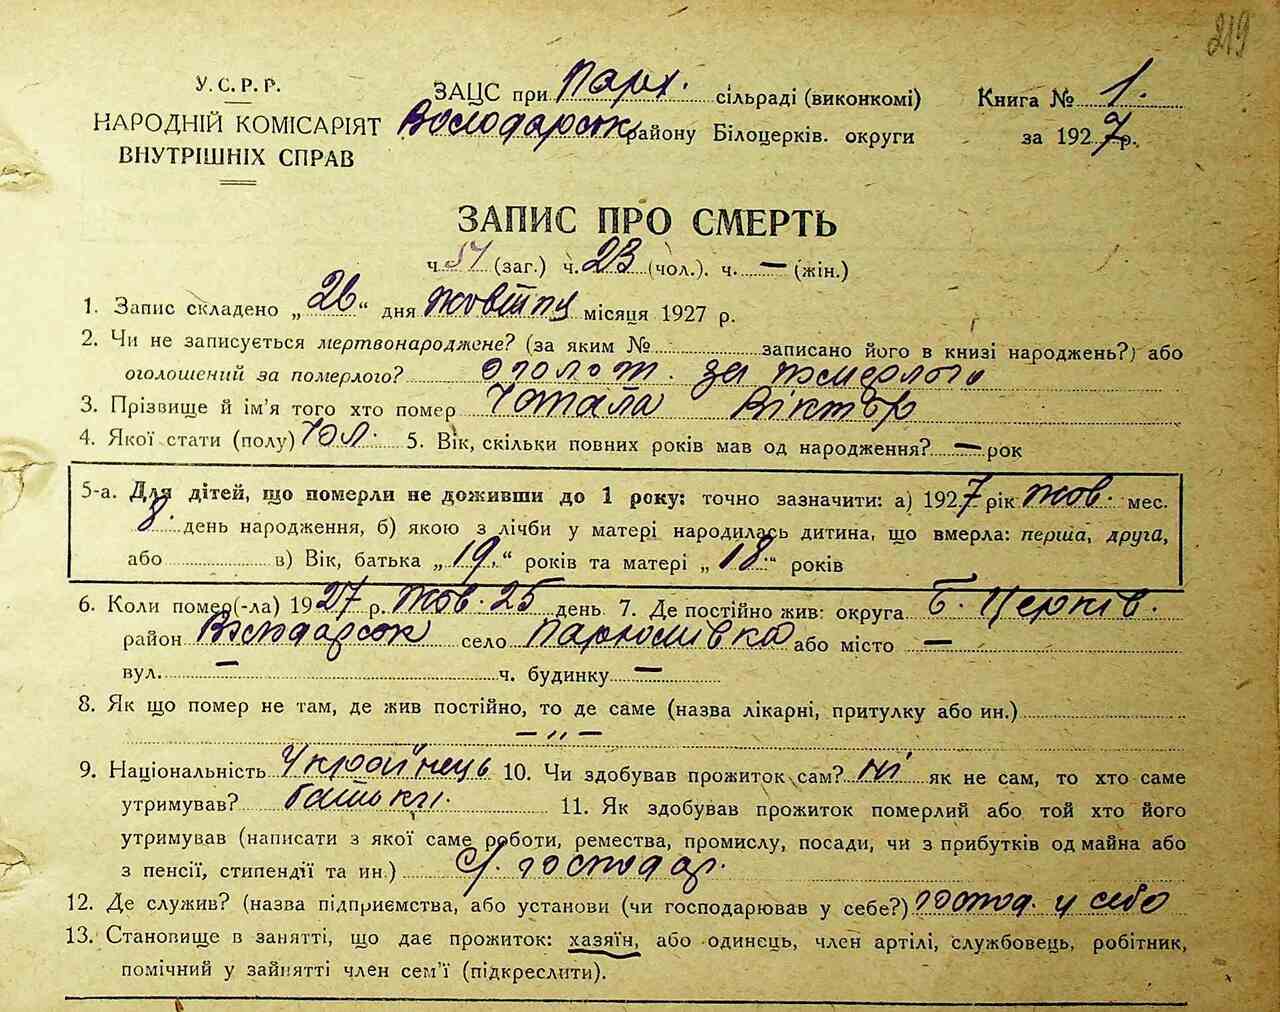 219
У. С. Р. Р.
НАРОДНІЙ КОМІСАРІЯТ
ВНУТРІШНІХ СПРАВ
ЗАЦС при Парх. сільраді (виконкомі)
Володарськ району Білоцерків. округи
Книга № 1.
за 1927 р.
ЗАПИС ПРО СМЕРТЬ
ч. 51 (заг.) ч. 23 (чол.). ч. — (жін.)
1. Запис складено „26“ дня жовтня місяця 1927 р.
2. Чи не записується мертвонароджене? (за яким № записано його в книзі народжень?) або
оголошений за померлого? оголош. за померлого
3. Прізвище й ім’я того хто помер Чотала Віктор
4. Якої стати (полу) Чол. 5. Вік, скільки повних років мав од народження? — рок
5-а. Для дітей, що померли не доживши до 1 року: точно зазначити: а) 1927 рік жов. мес.
8. день народження, б) якою з лічби у матері народилась дитина, що вмерла: перша, друга,
або в) Вік, батька „19.“ років та матері „18.“ років
6. Коли помер(-ла) 1927 р. Жов. 25 день 7. Де постійно жив: округа Б. Церків.
район Володарськ село Пархомівка або місто —
вул. — ч. будинку —
8. Як що помер не там, де жив постійно, то де саме (назва лікарні, притулку або ин.)
— „ —
9. Національність Українець 10. Чи здобував прожиток сам? ні як не сам, то хто саме
утримував? батьки. 11. Як здобував прожиток померлий або той хто його
утримував (написати з якої саме роботи, ремества, промислу, посади, чи з прибутків од майна або
з пенсії, стипендії та ин.) С/. господар.
12. Де служив? (назва підприємства, або установи (чи господарював у себе?) господ. у себе
13. Становище в занятті, що дає прожиток: хазяїн, або одинець, член артілі, службовець, робітник,
помічний у зайнятті член сем’ї (підкреслити).